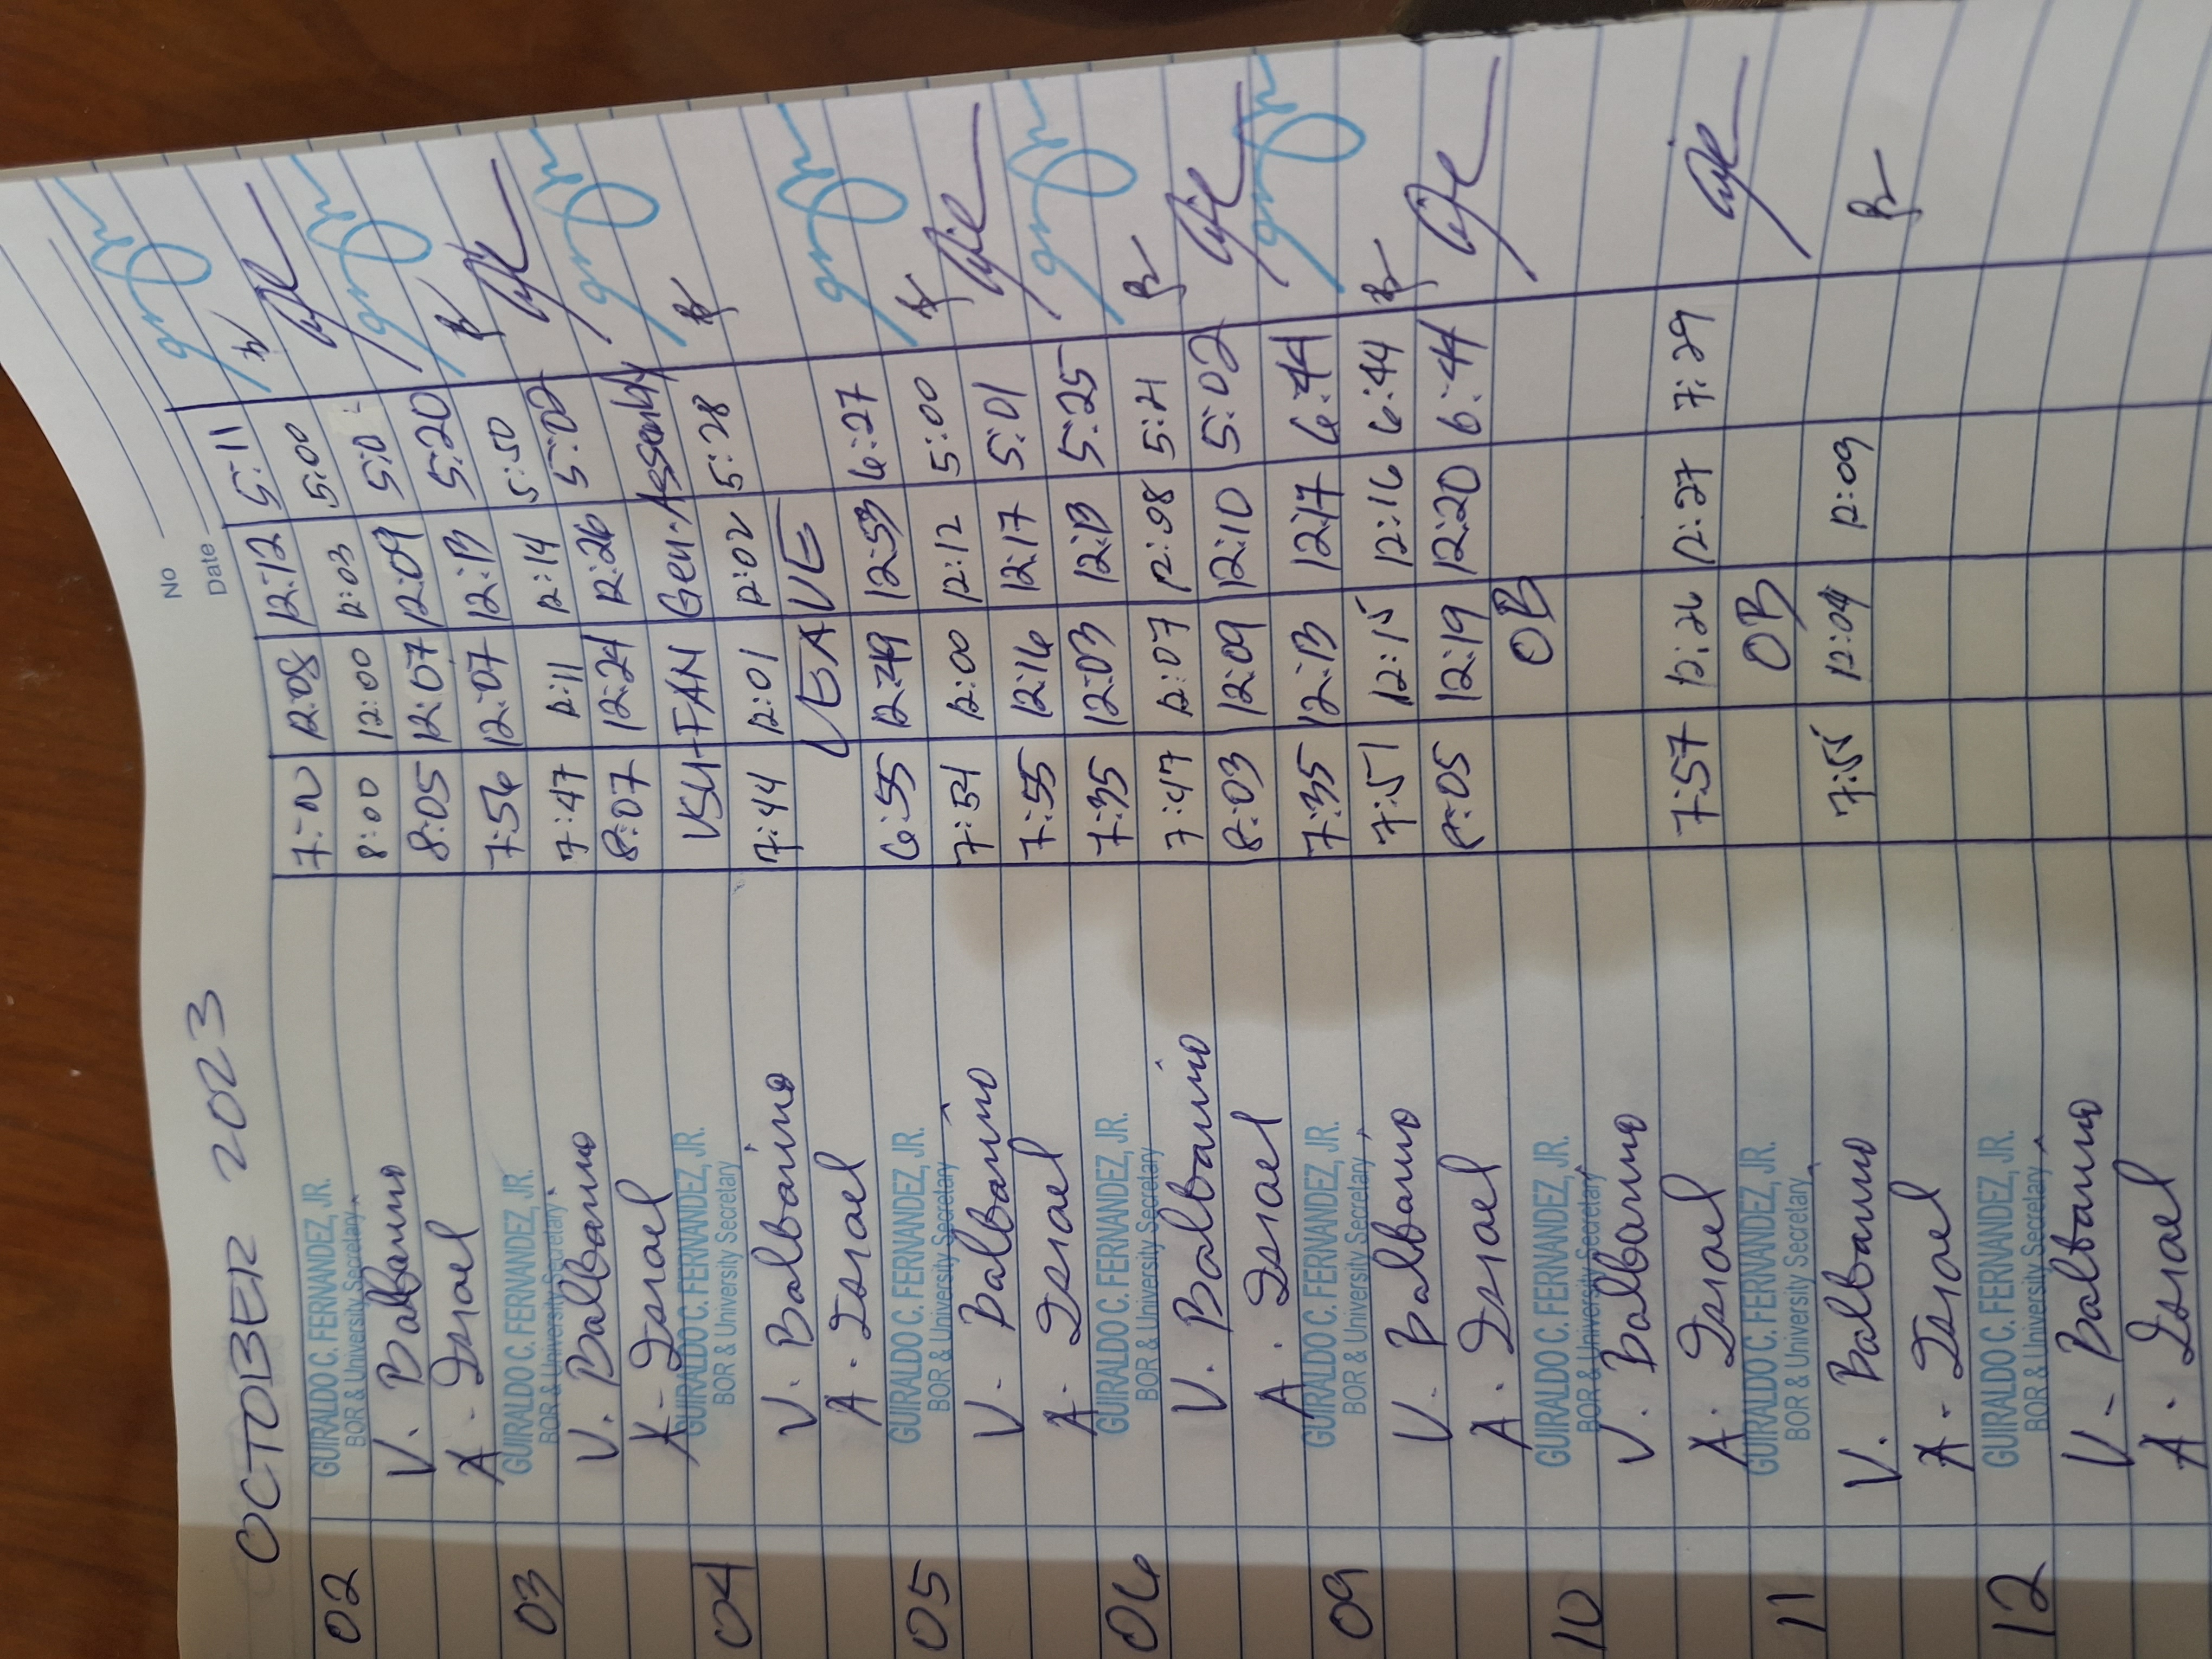 No
Date
OCTOBER 2023
02 GUIRALDO C. FERNANDEZ, JR. 12:08 12:12 5:11
BOR & University Secretary
V. Balbarino 8:00 12:00 12:03 5:00
A. Israel 8:05 12:07 12:09 5:0
03 GUIRALDO C. FERNANDEZ, JR. 7:56 12:07 12:13 5:20
BOR & University Secretary
V. Balbarino 7:47 12:11 12:14 5:50
A. Israel 8:07 12:24 12:26 5:02
04 GUIRALDO C. FERNANDEZ, JR. VSU-FAN Gen. Assembly
BOR & University Secretary
V. Balbarino 7:44 12:01 12:02 5:28
A. Israel LEAVE
05 GUIRALDO C. FERNANDEZ, JR. 6:55 12:49 12:53 6:27
BOR & University Secretary
V. Balbarino 7:54 12:00 12:12 5:00
A. Israel 7:55 12:16 12:17 5:01
06 GUIRALDO C. FERNANDEZ, JR. 7:35 12:03 12:13 5:25
BOR & University Secretary
V. Balbarino 7:47 12:07 5:21
A. Israel 8:03 12:09 12:10 5:02
09 GUIRALDO C. FERNANDEZ, JR. 7:35 12:13 12:17 6:44
BOR & University Secretary
V. Balbarino 7:51 12:15 12:16 6:44
A. Israel 8:05 12:19 12:20 6:44
10 GUIRALDO C. FERNANDEZ, JR. OB
BOR & University Secretary
V. Balbarino
A. Israel 7:57 12:26 12:27 7:29
11 GUIRALDO C. FERNANDEZ, JR. OB
BOR & University Secretary
V. Balbarino 7:55 12:04 12:09
A. Israel
12 GUIRALDO C. FERNANDEZ, JR.
BOR & University Secretary
V. Balbarino
A. Israel